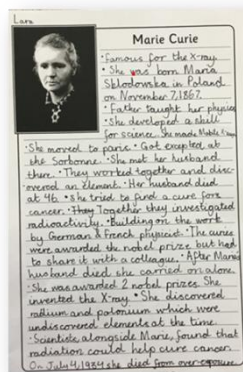 Lara
Marie Curie
• Famous for the X-ray
• She was born Maria
Sklodowska in Poland
on November 7, 1867.
• Father taught her physics
• She developed a skill
for science. She made Mobile X-rays
• She moved to paris • Got excepted at
the Sorbonne. • She met her husband
there • They worked together and disc-
overed an element. • Her husband died
at 46. • She tried to find a cure for
cancer. • They Together they investigated
radioactivity. • Building on the work
by German & french physicist • The curies
were awarded the nobel prize but had
to share it with a colleague. • After Maries
husband died she carried on alone
• She was awarded 2 nobel prizes. She
invented the X-ray. • She discovered
radium and polonium which were
undiscovered elements at the time
• Scientists, alongside Marie, found that
radiation could help cure cancer.
On July 4, 1934 she died from over-exposure